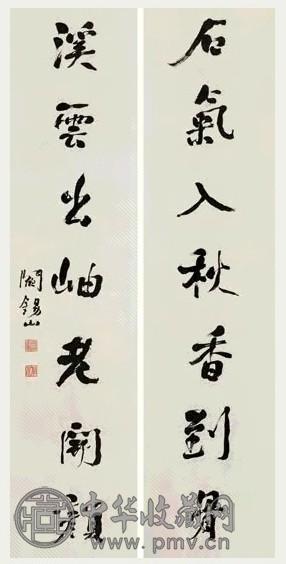 石氣入秋香到骨
溪雲出岫老開顏
閻錫山
中华收藏网
www.pmv.cn